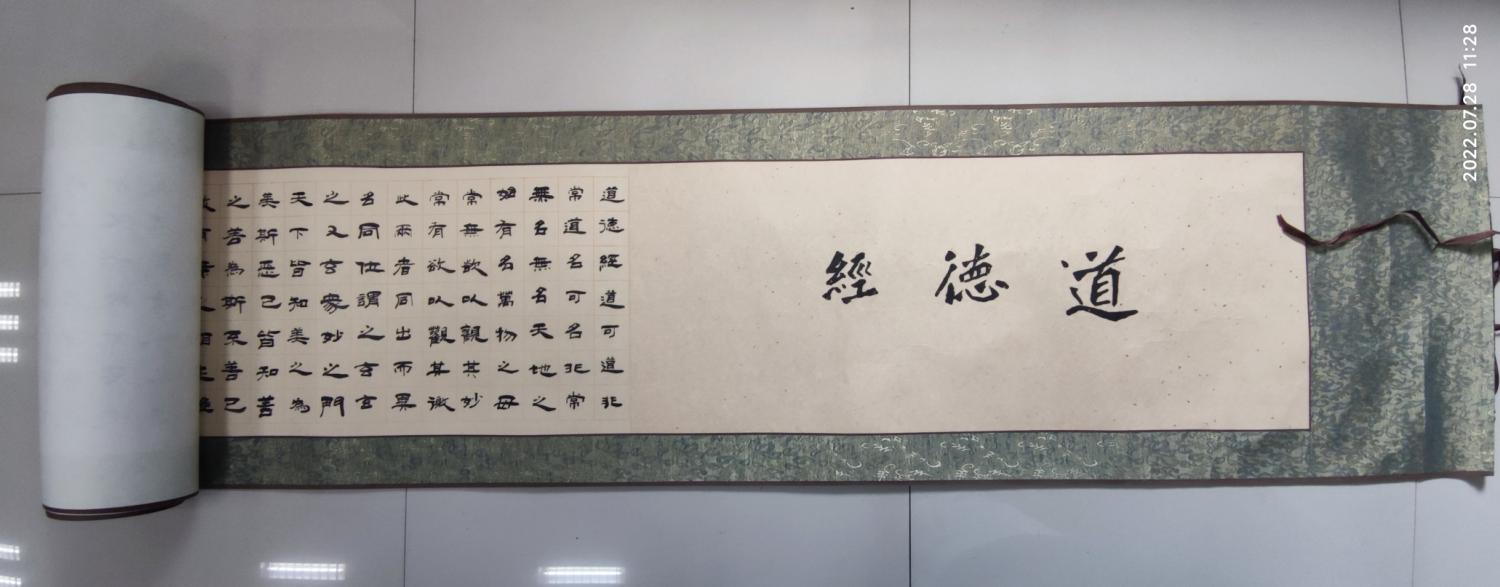 道德經
道德經道可道非
常道名可名非常
無名無名天地之
始有名萬物之母
常無欲以觀其妙
常有欲以觀其徼
此兩者同出而異
名同位謂之玄玄
之又玄衆妙之門
天下皆知美之為
美斯惡已皆知善
之善為斯不善已
2022.07.28 11:28